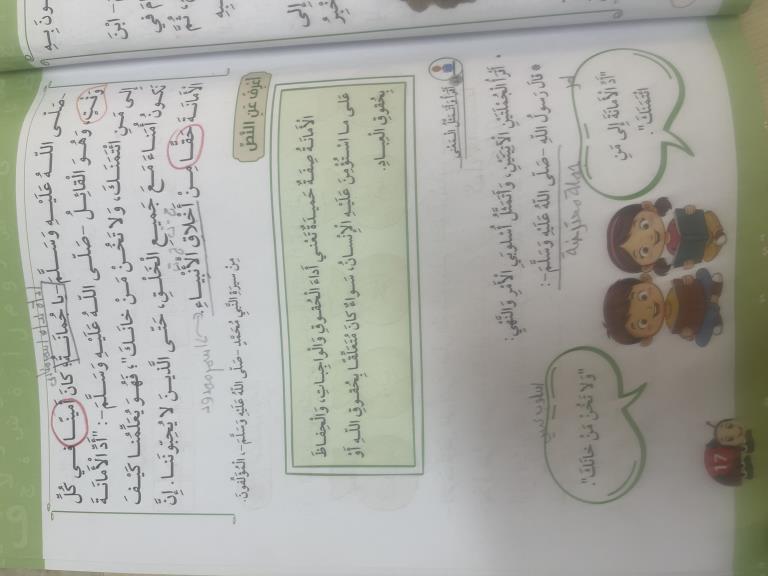 -صَلَّى اللهُ عَلَيْهِ وَسَلَّمَ- يا جُمانَةُ، كانَ أَمينًا في كُلِّ
وَقْتٍ، وَهُوَ الْقائِلُ -صَلَّى اللهُ عَلَيْهِ وَسَلَّمَ-: "أَدِّ الْأَمانَةَ
إِلى مَنِ ائْتَمَنَكَ، وَلا تَخُنْ مَنْ خانَكَ"؛ فَهُوَ يُعَلِّمُنا كَيْفَ
نَكونُ أُمَناءَ مَعَ جَميعِ الْخَلْقِ، حَتّى الَّذينَ لا يُحِبّونَنا. إِنَّ
الْأَمانَةَ حَقًّا مِنْ أَخْلاقِ الْأَنْبِياءِ.
مِنْ سيرَةِ النَّبِيِّ مُحَمَّدٍ -صَلَّى اللهُ عَلَيْهِ وَسَلَّمَ-، الْمُؤَلِّفونَ.
أَعْرِفُ عَنِ النَّصِّ
الْأَمانَةُ صِفَةٌ حَميدَةٌ تَعْني أَداءَ الْحُقوقِ وَالْواجِباتِ، وَالْحِفاظَ
عَلى ما اسْتُؤْمِنَ عَلَيْهِ الْإِنْسانُ، سَواءٌ كانَ مُتَعَلِّقًا بِحُقوقِ اللهِ أَوْ
بِحُقوقِ الْعِبادِ.
أَقْرَأُ وَأَتَمَثَّلُ الْمَعْنى
• أَقْرَأُ الْجُمْلَتَيْنِ الْآتِيَتَيْنِ، وَأَتَمَثَّلُ أُسْلوبَيِ الْأَمْرِ وَالنَّهْيِ:
* قالَ رَسولُ اللهِ -صَلَّى اللهُ عَلَيْهِ وَسَلَّمَ-:
"أَدِّ الْأَمانَةَ إِلى مَنِ
ائْتَمَنَكَ".
"وَلا تَخُنْ مَنْ خانَكَ".
17